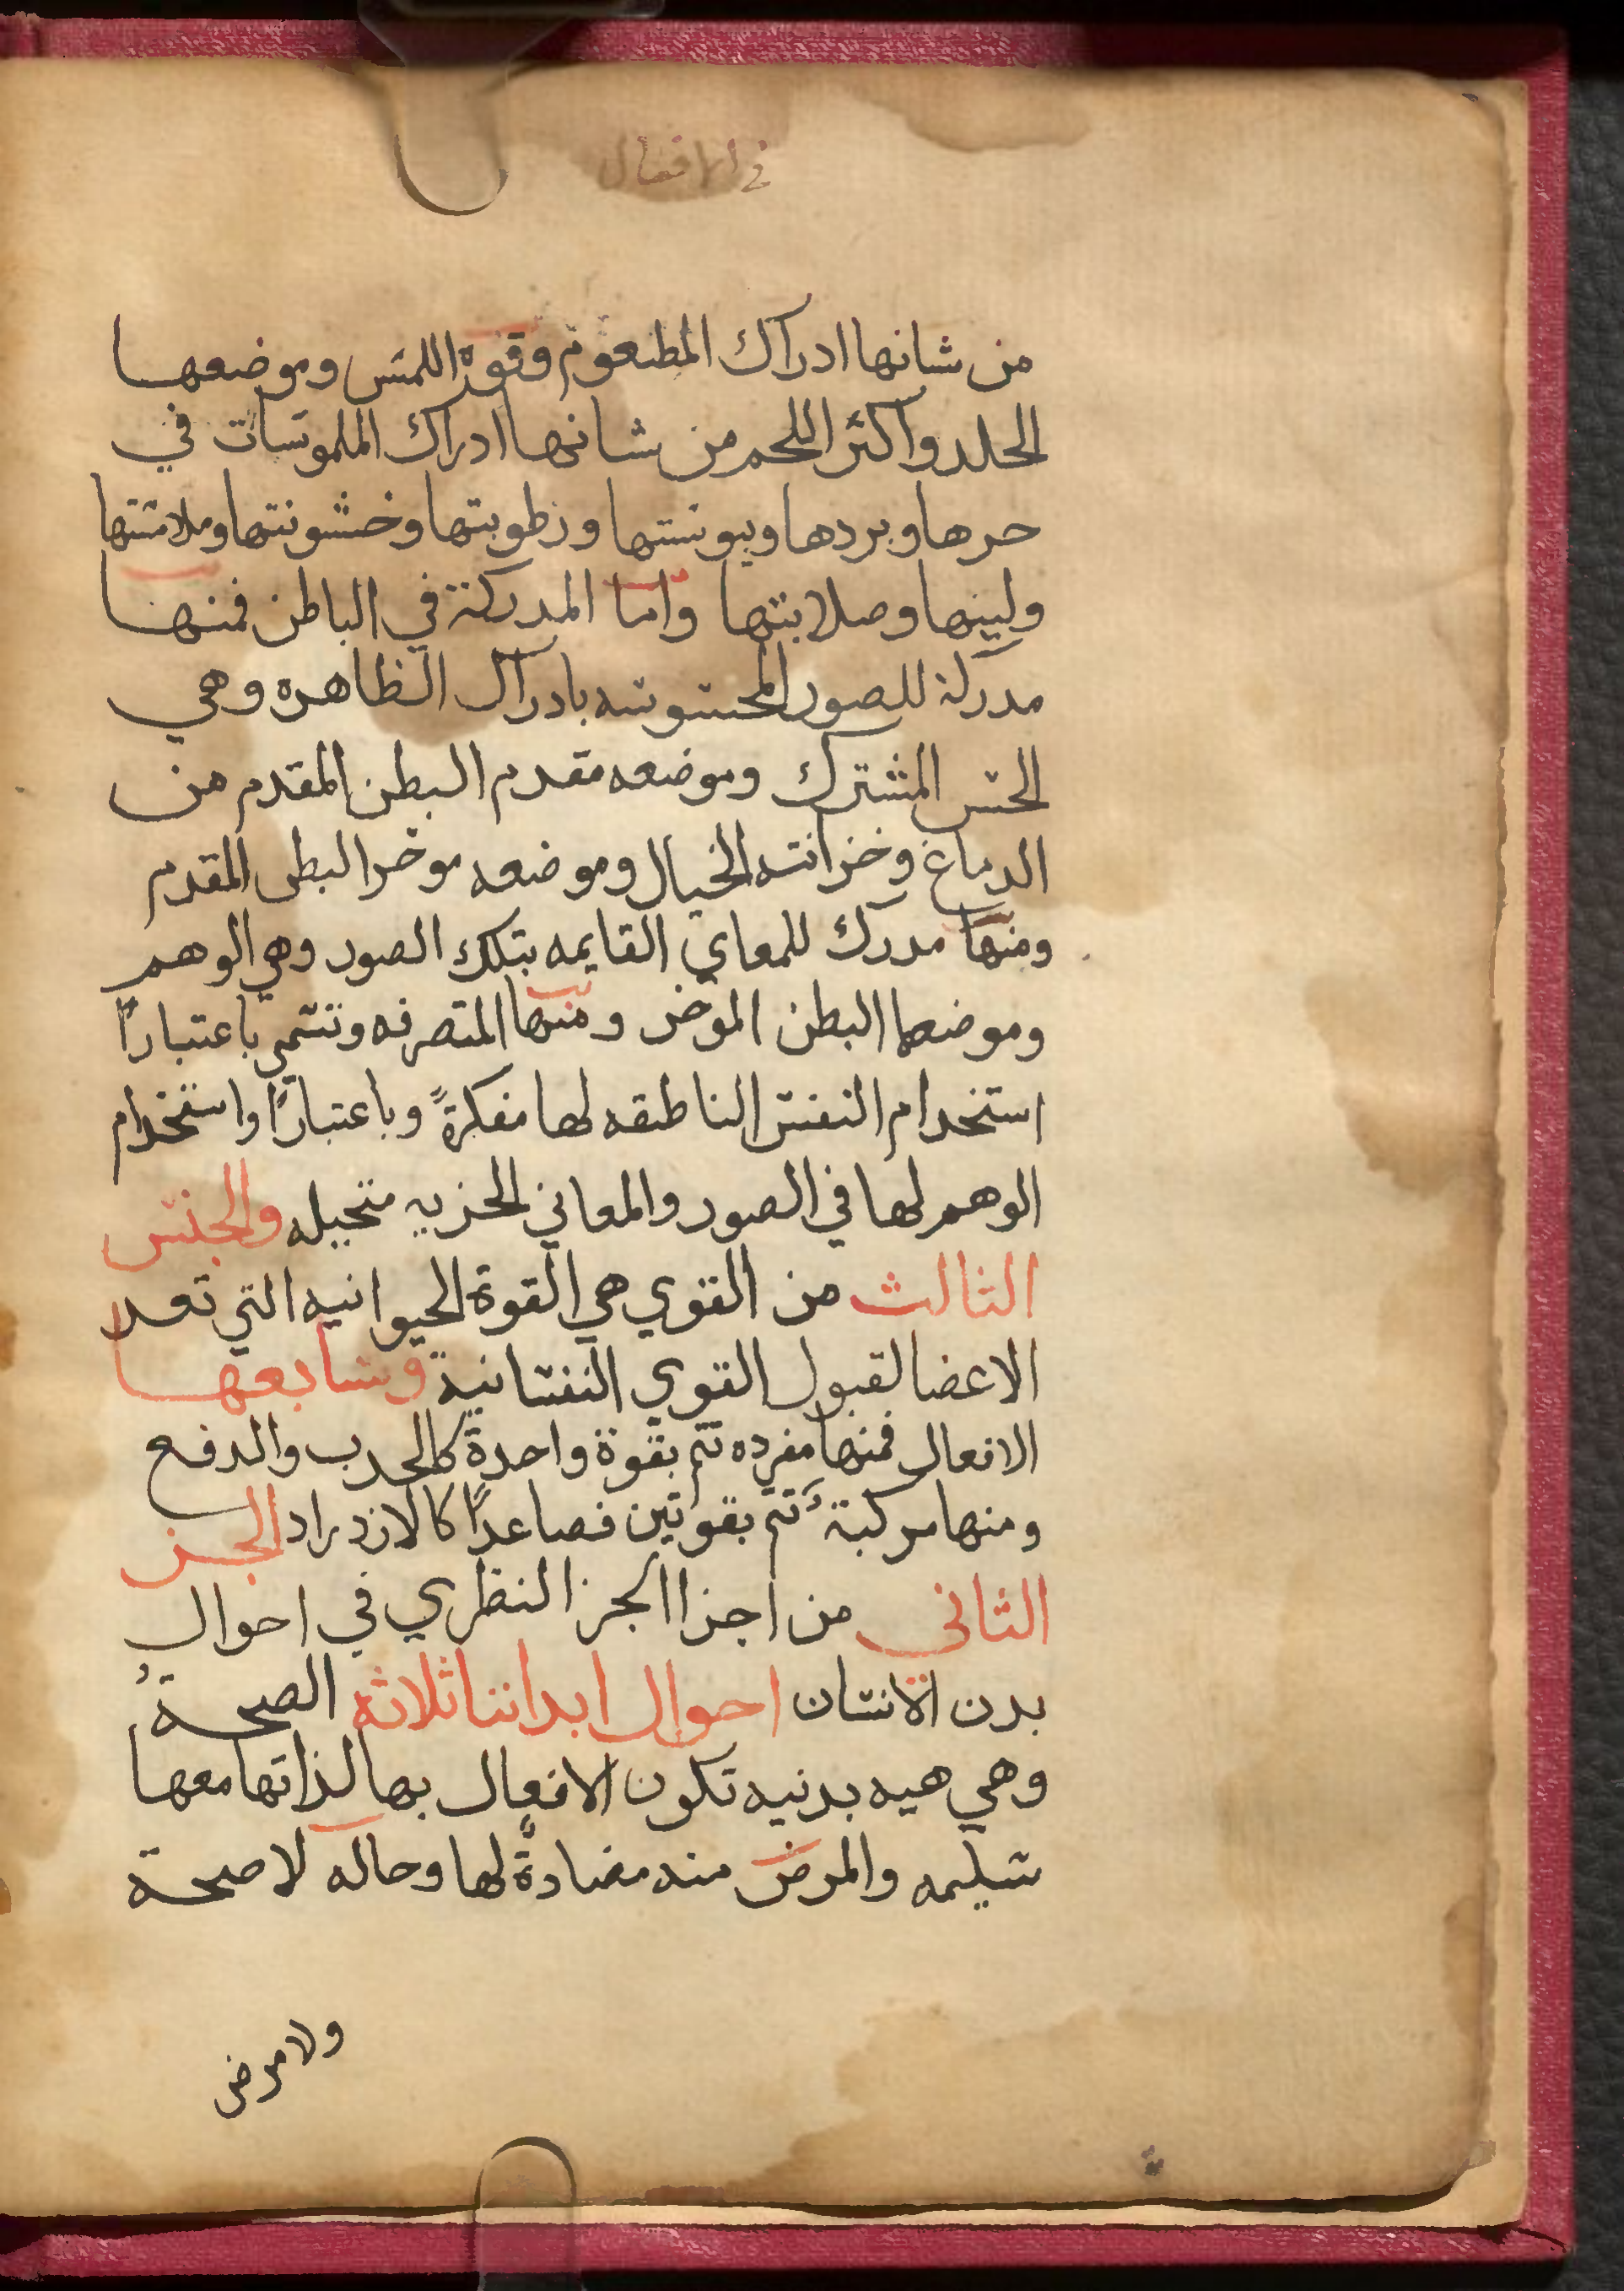 في الافعال
من شانها ادراك المطعوم وقوة اللمس وموضعها
الجلد واكثر اللحم من شانها ادراك الملموسات في
حرها وبردها ويبوستها ورطوبتها وخشونتها وملاستها
ولينها وصلابتها واما المدركة في الباطن فمنها
مدركة للصور المحسوسه بادراك الظاهره وهي
الحس المشترك وموضعه مقدم البطن المقدم من
الدماغ وخزانته الخيال وموضعه موخر البطن المقدم
ومنها مدرك للمعاني القايمه بتلك الصور وهي الوهم
وموضعها البطن الموخر ومنها المتصرفه وتسمي باعتبارًا
استخدام النفس الناطقه لها مفكرةً وباعتبارًا واستخدام
الوهم لها في الصور والمعاني الجزيه متخيله والجنس
الثالث من القوي هي القوة الحيوانيه التي تعد
الاعضا لقبول القوي النفسانية وسابعها
الافعال فمنها مفرده تتم بقوة واحدة كالجدب والدفع
ومنها مركبة تتم بقوتين فصاعدًا كالازدراد الجز
الثاني من اجزا الجز النظري في احوال
بدن الانسان احوال ابداننا ثلاثه الصحة
وهي هيه بدنيه تكون الافعال بها لذاتها معها
سليمه والمرض منه مضادةً لها وحاله لا صحة
ولا مرض